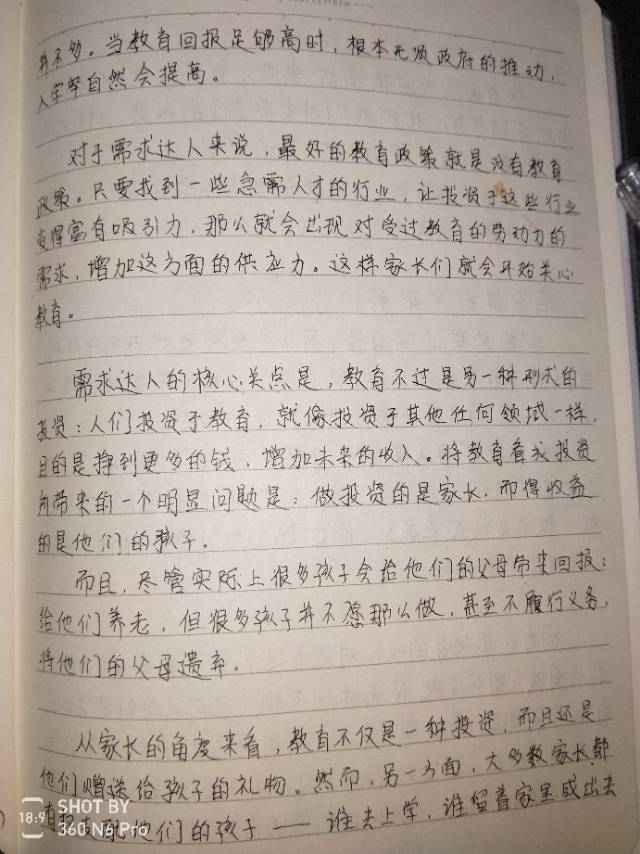 并不多。当教育回报足够高时，根本无须政府的推动，
入学率自然会提高。
对于需求达人来说，最好的教育政策就是没有教育
政策。只要找到一些急需人才的行业，让投资于这些行业
变得富有吸引力，那么就会出现对受过教育的劳动力的
需求，增加这方面的供应力。这样家长们就会开始关心
教育。
需求达人的核心关点是，教育不过是另一种形式的
投资：人们投资于教育，就像投资于其他任何领域一样，
目的是挣到更多的钱，增加未来的收入。将教育看成投资
所带来的一个明显问题是：做投资的是家长，而得收益
的是他们的孩子。
而且，尽管实际上很多孩子会给他们的父母带来回报：
给他们养老，但很多孩子并不愿那么做，甚至不履行义务，
将他们的父母遗弃。
从家长的角度来看，教育不仅是一种投资，而且还是
他们赠送给孩子的礼物。然而，另一方面，大多数家长都
有权支配他们的孩子——谁去上学，谁留着家里或出去
SHOT BY
360 N6 Pro